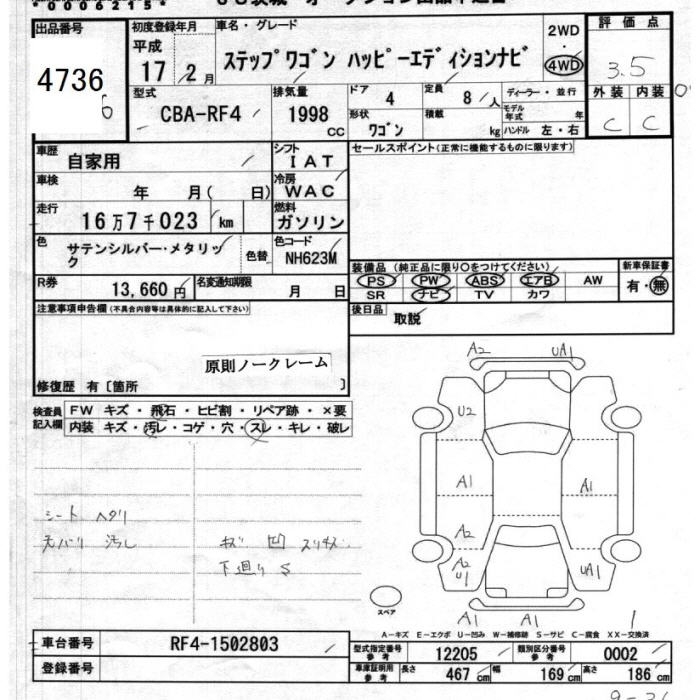 *0000215*
出品番号
4736
初度登録年月
平成
17 / 2 月
車名・グレード
ステップワゴン ハッピーエディションナビ
2WD
・
4WD
評価点
3.5
外装 内装
C C
型式
CBA-RF4
排気量
1998
CC
ドア
4
定員
8 / 人
ディーラー・並行
形状
ワゴン
積載
kg
モデル年式 年
ハンドル 左・右
車歴
自家用
シフト
IAT
セールスポイント(正常に機能するものに限ります)
車検
年 月( 日)
冷房
WAC
走行
16万7千023 km
燃料
ガソリン
色
サテンシルバー・メタリック
色替
色コード
NH623M
装備品(純正品に限り○をつけてください)
新車保証書
PS PW ABS エアB AW
SR ナビ TV カワ
有・無
R券
13,660円
名変通知期限
月 日
後日品
取説
注意事項申告欄(不具合内容等は具体的に記入して下さい)
原則ノークレーム
修復歴 有〔箇所 〕
検査員記入欄
FW キズ・飛石・ヒビ割・リペア跡・×要
内装 キズ・汚レ・コゲ・穴・スレ・キレ・破レ
シート ヘタリ
天バリ 汚レ
キズ 凹 スリキズ
下廻り S
A2 UA1
U2
A1 A1
A2
A2
U1
UA1
A1 A1
スペア
A-キズ E-エクボ U-凹み W-補修跡 S-サビ C-腐食 XX-交換済
車台番号
RF4-1502803
登録番号
型式指定番号
参考
12205
類別区分番号
参考
0002
車庫証明用
参考
長さ 467 cm
幅 169 cm
高さ 186 cm